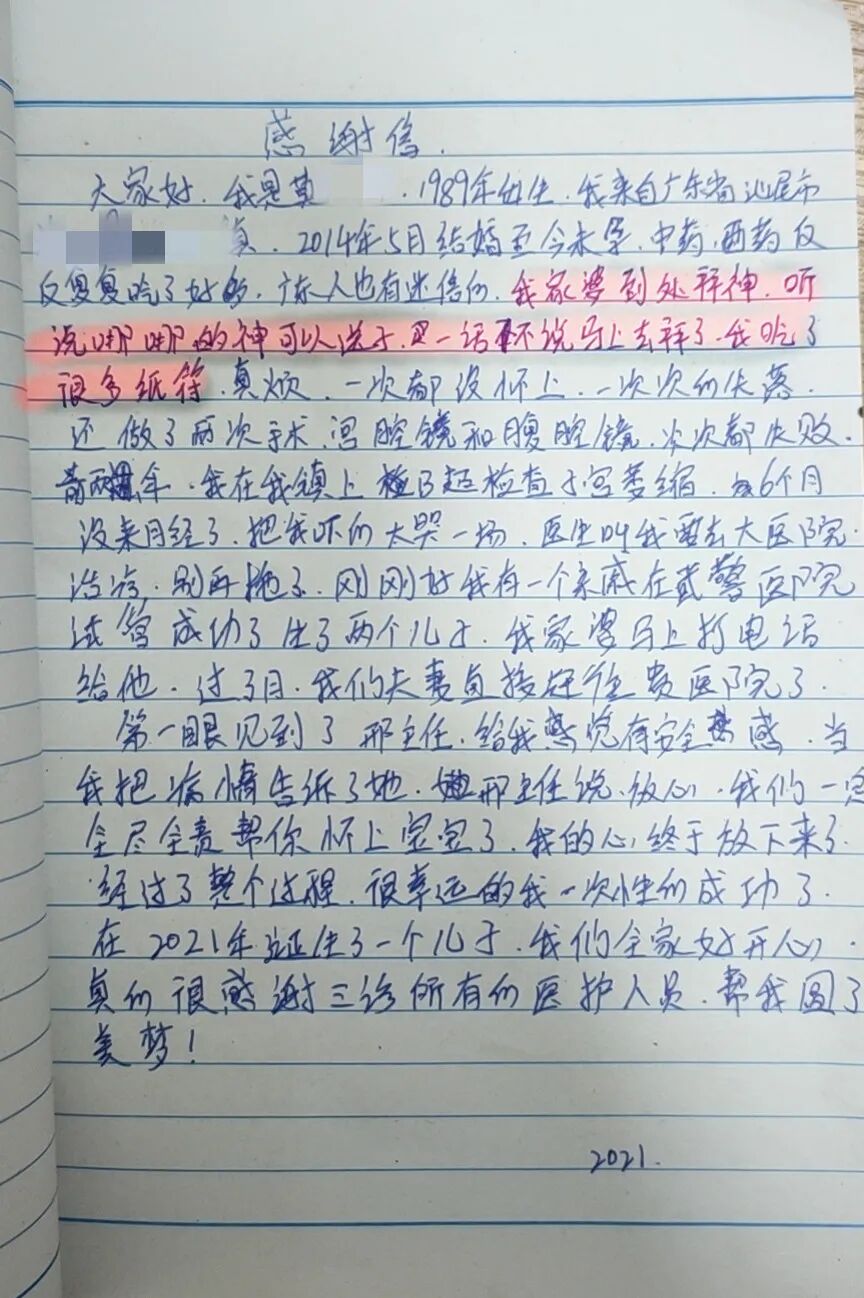 感谢信.
大家好.我是黄 .1989年出生.我来自广东省汕尾市
镇.2014年5月结婚至今未孕.中药.西药反
反复复吃了好多.广东人也有迷信的.我家婆到处拜神.听
说哪哪的神可以送子.一话不说马上去拜了.我吃了
很多纸符.真烦.一次都没怀上.一次次的失落.
还做了两次手术.宫腔镜和腹腔镜.次次都失败.
前两年.我在我镇上B超检查子宫萎缩.6个月
没来月经了.把我吓的大哭一场.医生叫我要去大医院
治疗.别再拖了.刚刚好我有一个亲戚在武警医院
试管成功了生了两个儿子.我家婆马上打电话
给他.过了月.我们夫妻直接赶往贵医院了.
第一眼见到了邢主任.给我感觉有安全感.当
我把病情告诉了她.邢主任说.放心.我们一定
全尽全责帮你怀上宝宝了.我的心终于放下来了.
经过了整个过程.很幸运的我一次性的成功了.
在2021年生了一个儿子.我们全家好开心.
真的很感谢三诊所有的医护人员.帮我圆了
美梦!
2021.